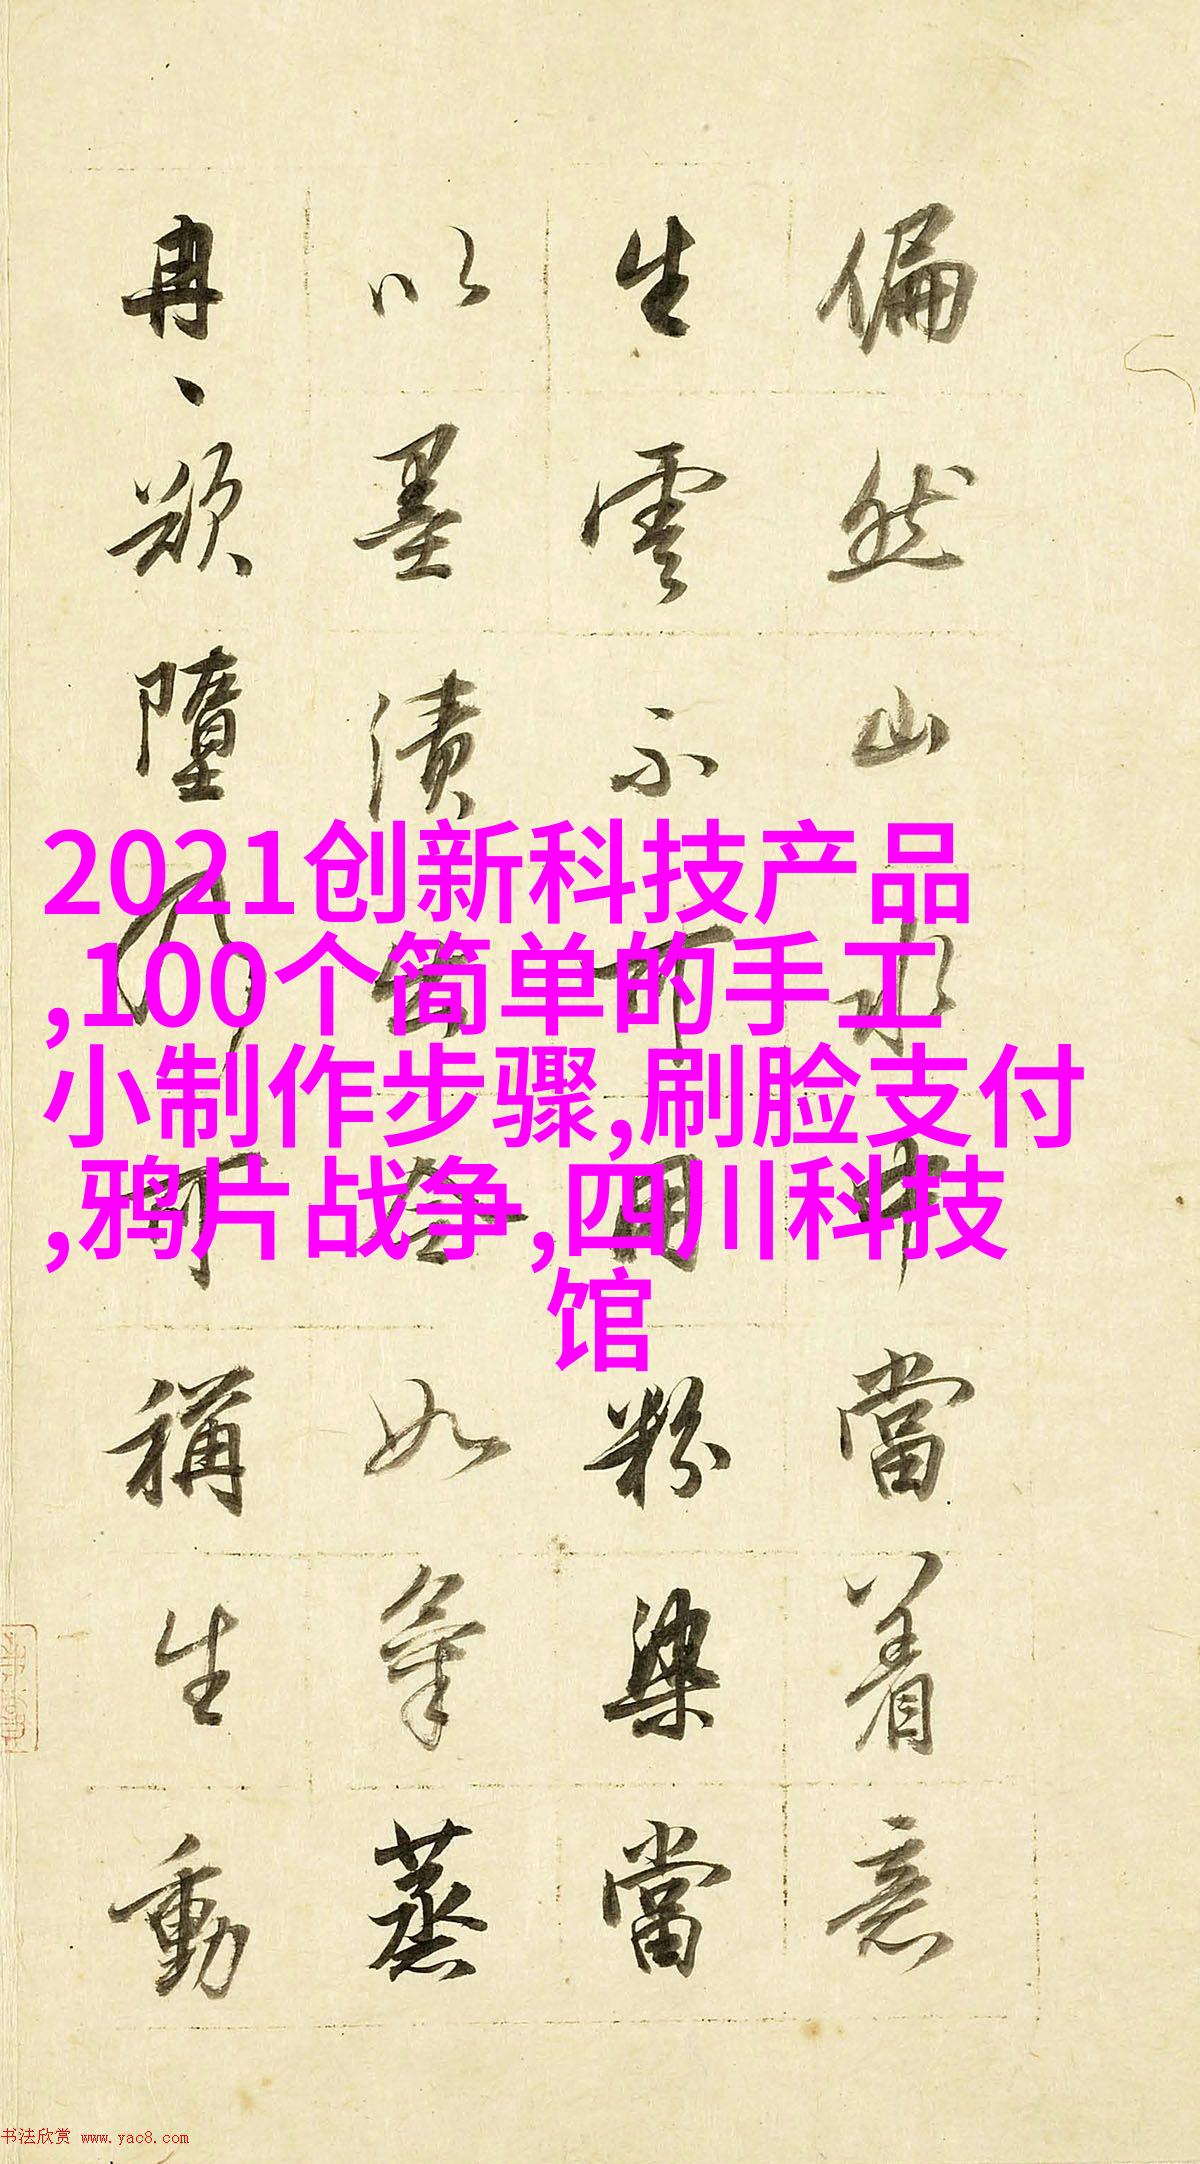 2021创新科技产品
,100个简单的手工
小制作步骤,刷脸支付
,鸦片战争,四川科技
馆
偏然山水中當着意
生雲不可用粉染當
以墨漬出令如氣蒸
冉、欲墮乃可稱生動
书法欣赏 www.yac8.com